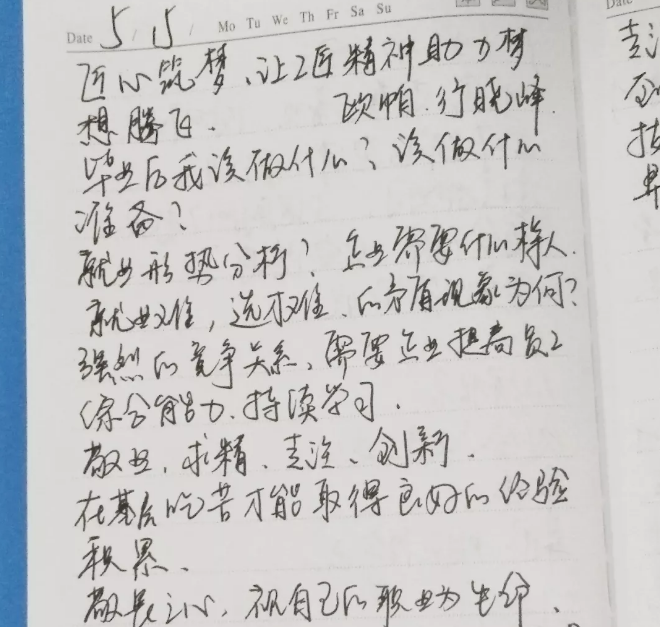 Date 5 / 15 / Mo Tu We Th Fr Sa Su
匠心筑梦、让工匠精神助力梦
想腾飞. 欧帕.行晓峰.
毕业后我该做什么?该做什么
准备?
就业形势分析?企业需要什么样人.
就业难,选才难、的矛盾现象为何?
强烈的竞争关系、需要企业提高员工
综合能力、持续学习.
敬业、求精、专注、创新.
在基层吃苦才能取得良好的经验
积累、
敬畏之心、视自己的职业为生命、
Date
专注
创
技